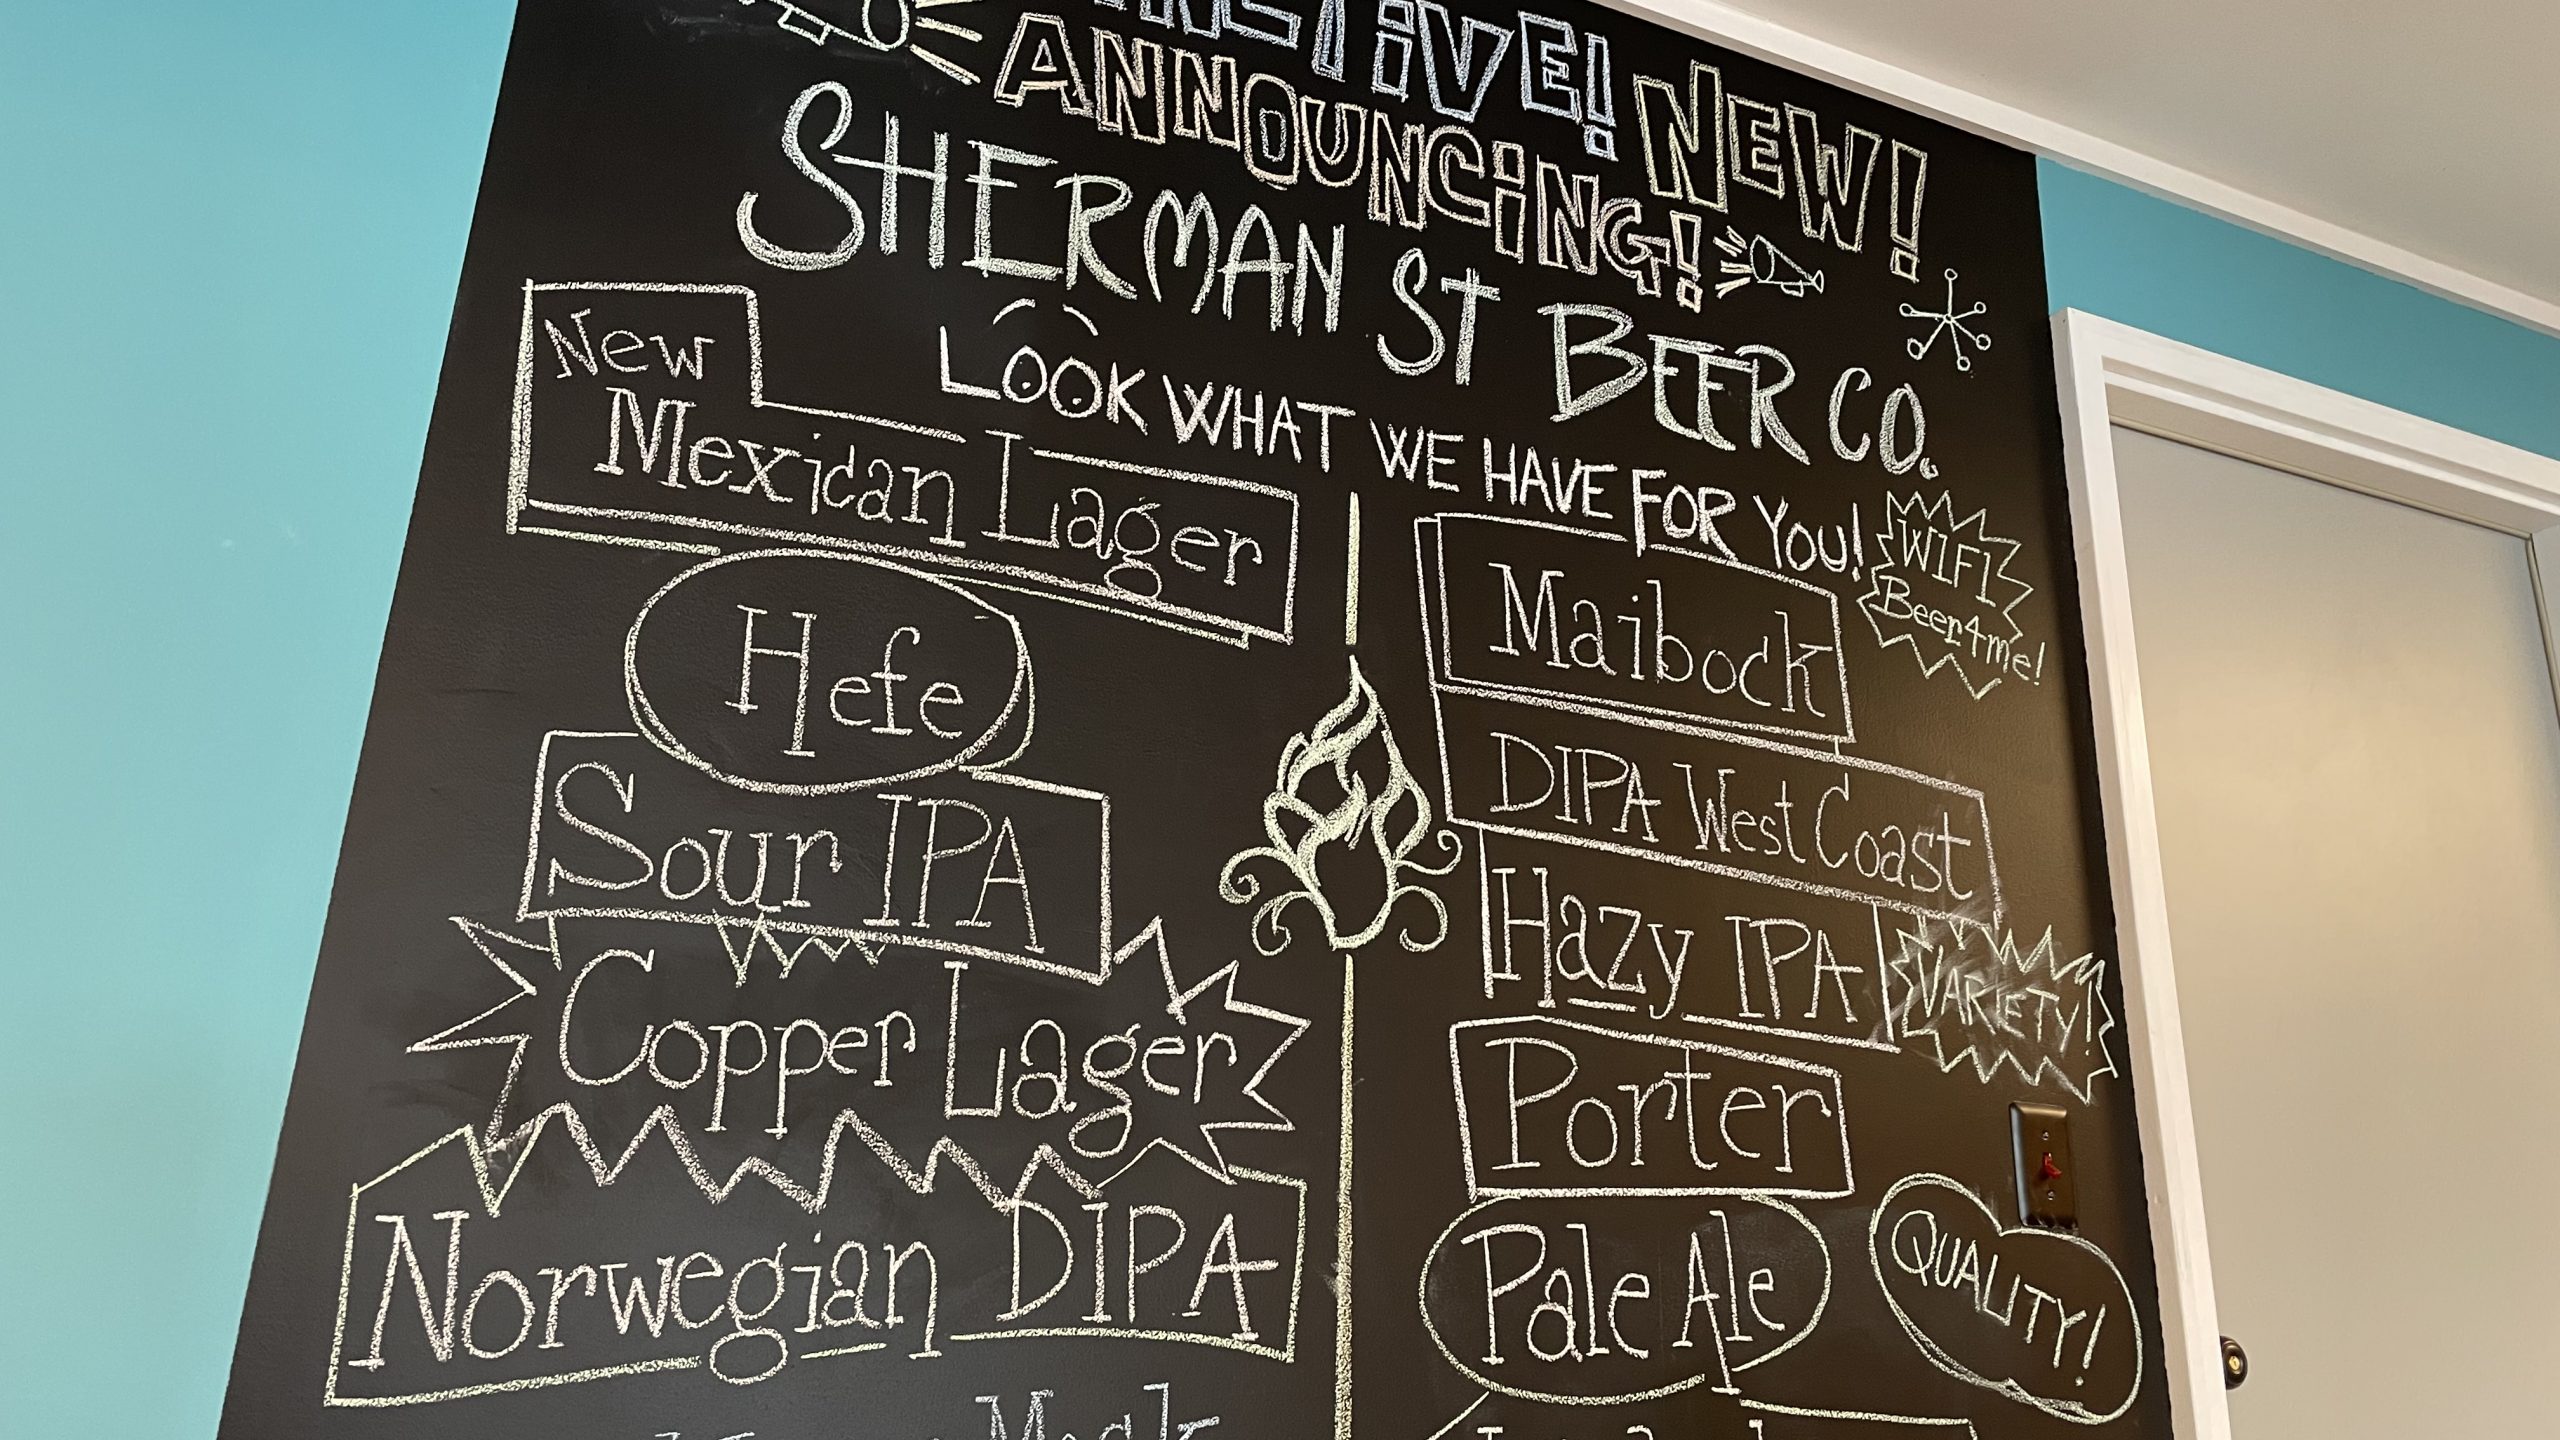 NEW!
ANNOUNCING!
SHERMAN ST BEER CO.
LOOK WHAT WE HAVE FOR YOU!
New
Mexican Lager
Hefe
Sour IPA
Copper Lager
Norwegian DIPA
WIFI
Beer4me!
Maibock
DIPA West Coast
Hazy IPA
VARIETY!
Porter
Pale Ale
QUALITY!